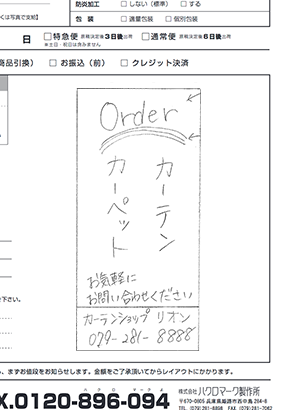 防炎加工 □ しない(標準) □ する
くは写真で支給]
包装 □ 適量包装 □ 個別包装
日 □特急便 原稿決定後3日後出荷 □通常便 原稿決定後6日後出荷
※土日・祝日は含みません
商品引換) □ お振込(前) □ クレジット決済
Order
カーテン
カーペット
お気軽に
お問い合わせください
カーテンショップ リオン
079-281-8888
下さい。
、まずお値段をお知らせします。金額をご了承頂いてからレイアウトにかかります。
X.0120-896-094
ハクロマークよ
株式会社 ハクロマーク製作所
〒670-0805 兵庫県姫路市西中島264-6
TEL (079) 281-8896 FAX (079)-281-7082